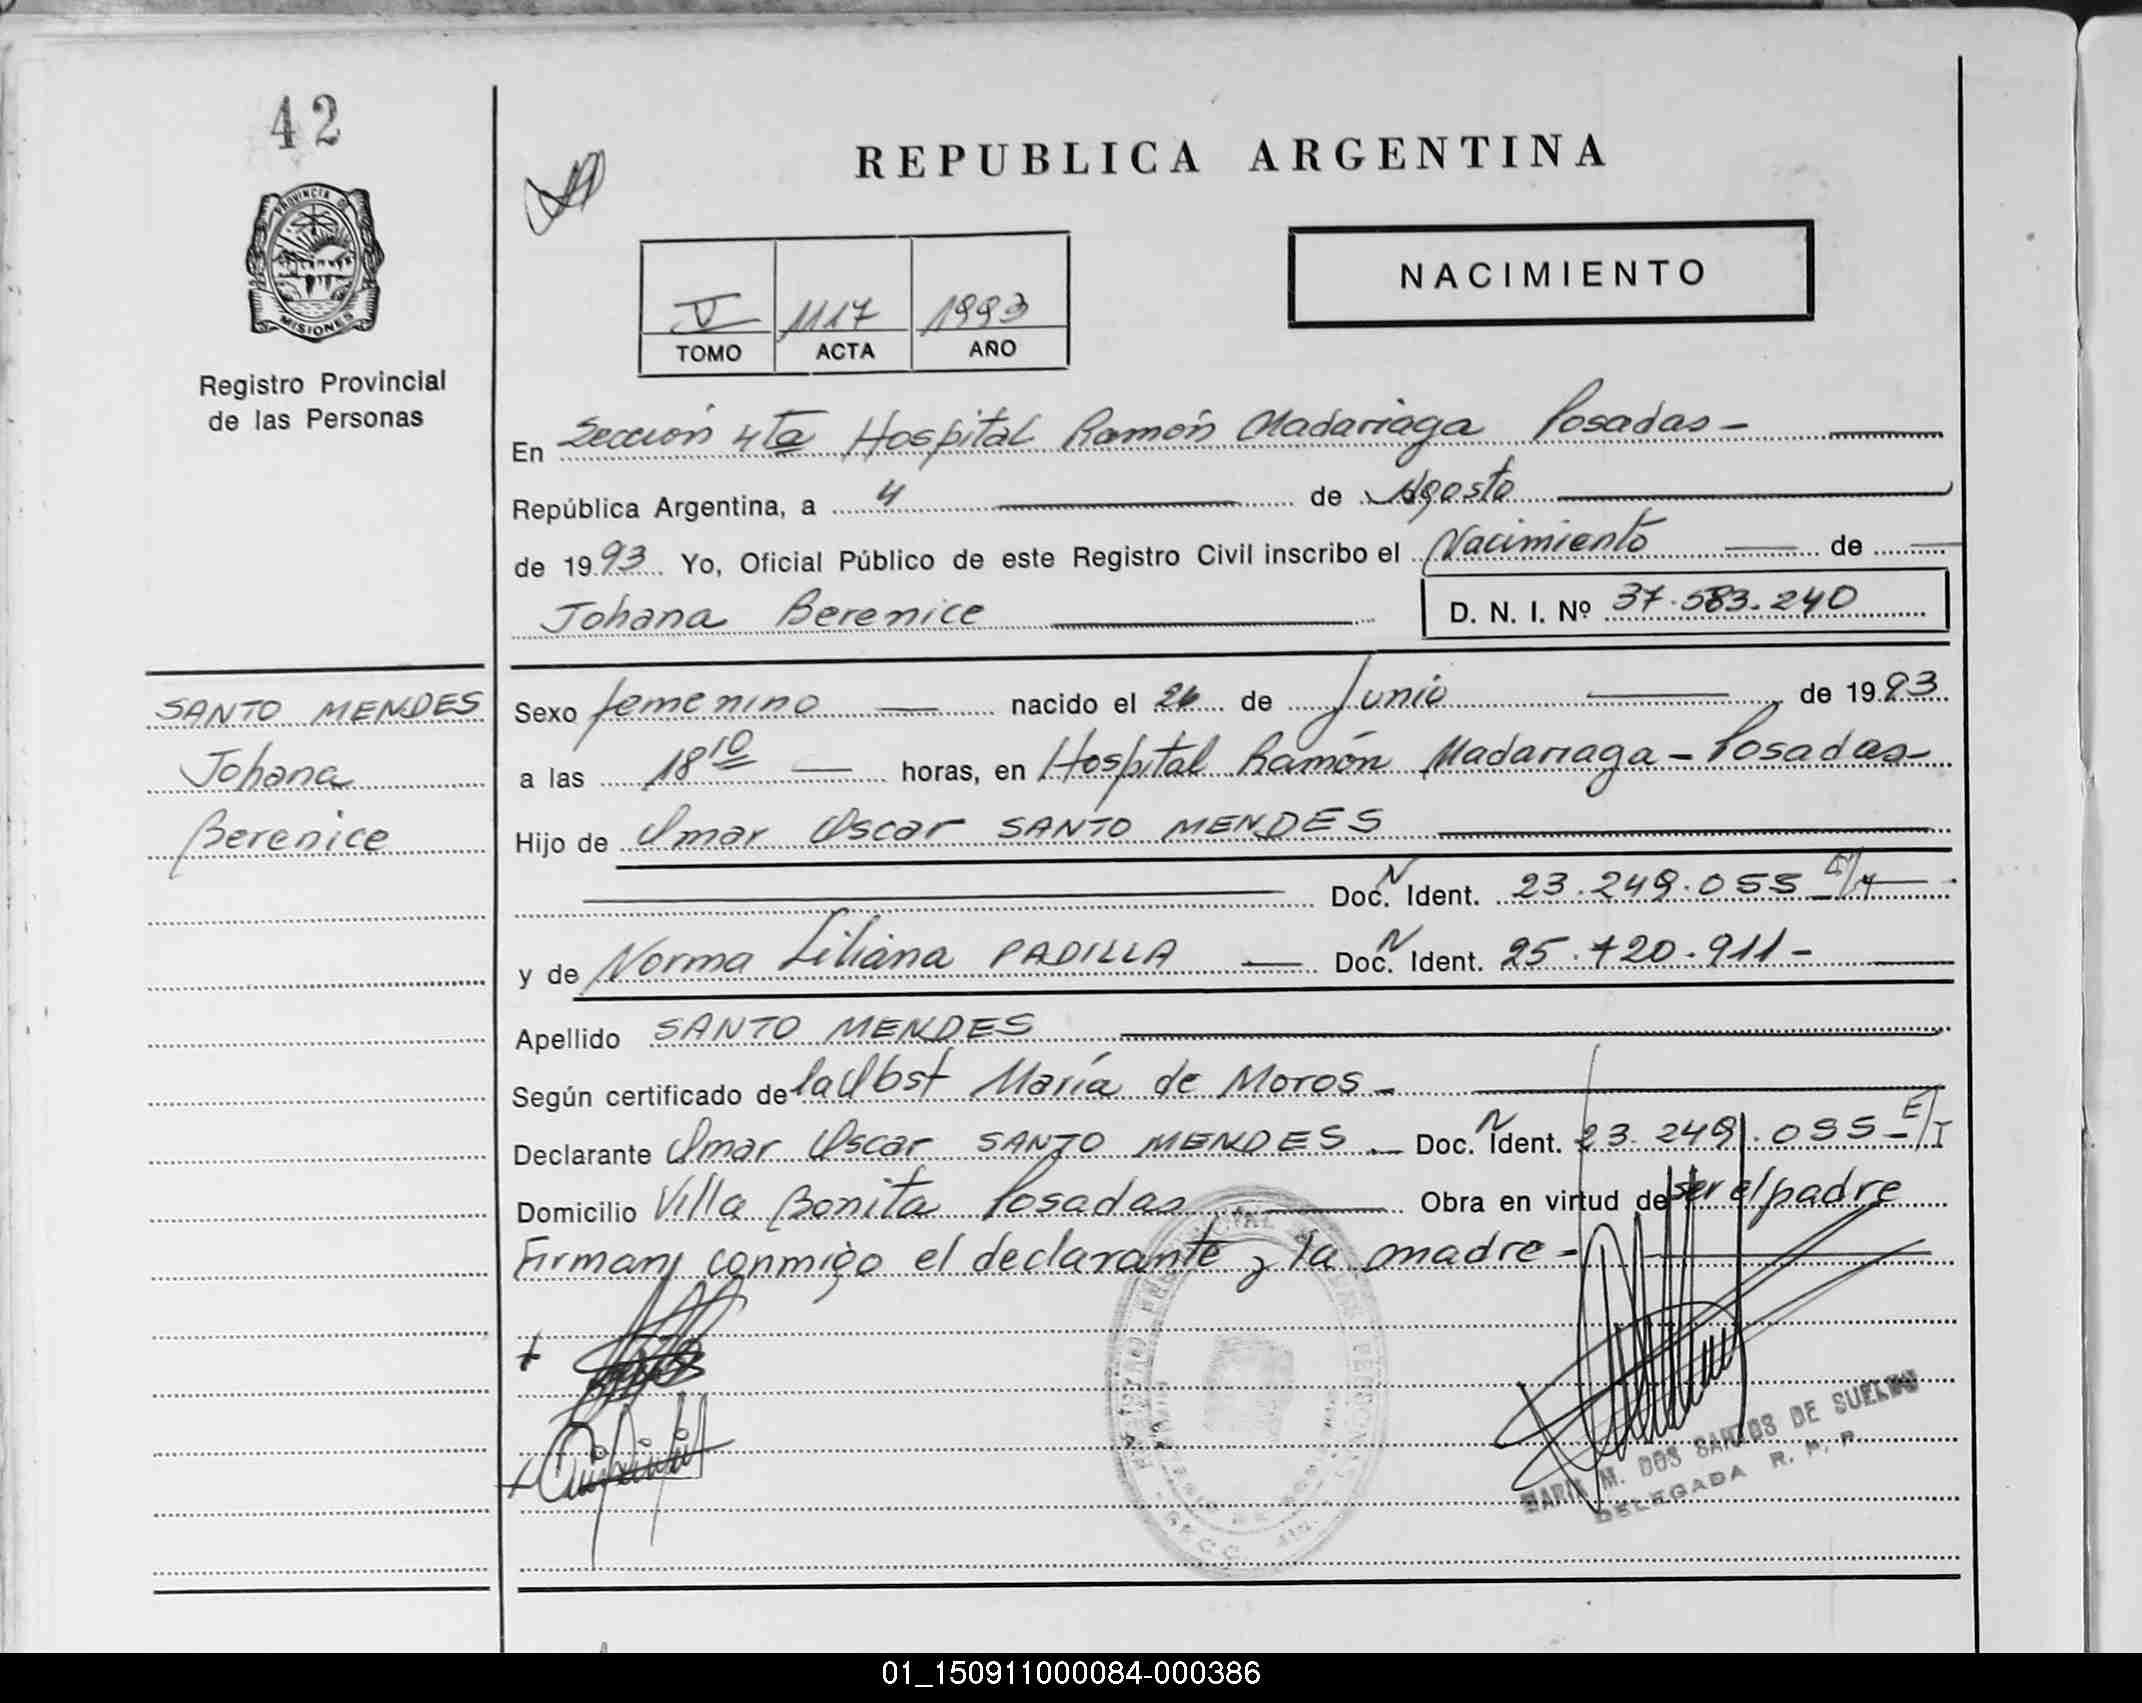 42
REPUBLICA ARGENTINA
PROVINCIA DE
MISIONES
NACIMIENTO
V 1117 1993
TOMO ACTA AÑO
Registro Provincial
de las Personas
En Sección 4ta Hospital Ramón Madariaga Posadas -
República Argentina, a 4 de Agosto
de 1993 Yo, Oficial Público de este Registro Civil inscribo el Nacimiento de
Johana Berenice D. N. I. Nº 37.583.240
SANTO MENDES
Johana
Berenice
Sexo femenino nacido el 26 de Junio de 1993
a las 18 10 horas, en Hospital Ramón Madariaga - Posadas
Hijo de Omar Oscar SANTO MENDES
Doc. N Ident. 23.249.055
y de Norma Liliana PADILLA Doc. N Ident. 25.720.911 -
Apellido SANTO MENDES
Según certificado de la Obst María de Moros -
Declarante Omar Oscar SANTO MENDES . - Doc. N Ident. 23.249.055 - E/I
Domicilio Villa Bonita Posadas Obra en virtud de ser el padre
Firman conmigo el declarante y la madre -
MARIA M. DOS SANTOS DE SUELDO
DELEGADA R. P. P.
01_150911000084-000386